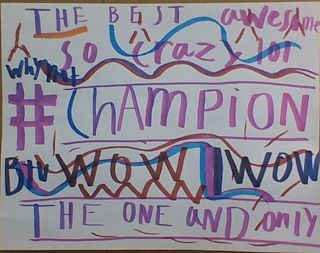 THE BEST awesome
so crazy lol
why not
# ChAMPION
BIU WOW IWOW
THE ONE AND only